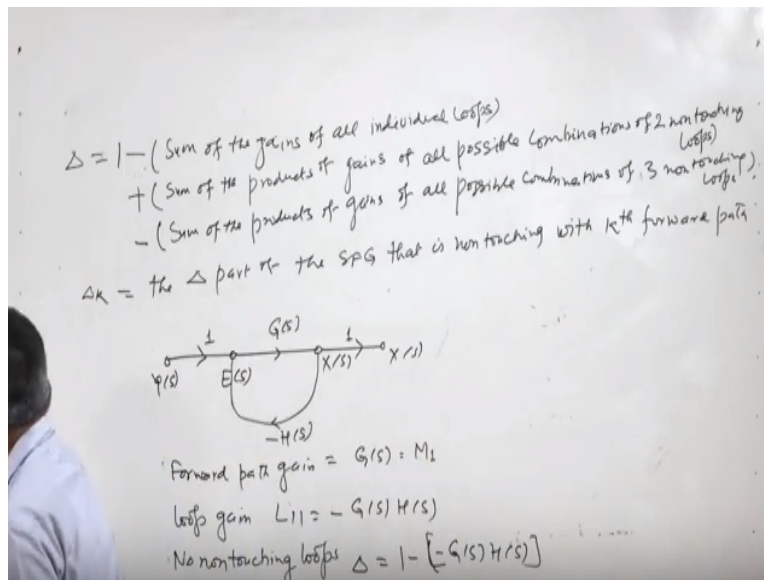 Δ = 1 - (Sum of the gains of all individual loops)
+ (Sum of the products of gains of all possible combinations of 2 nontouching loops)
- (Sum of the products of gains of all possible combinations of 3 nontouching loops).
ΔK = the Δ part of the SFG that is non touching with Kth forward path
G(s)
1
1
φ(s)
E(s)
X(s)
X(s)
-H(s)
Forward path gain = G(s) = M1
loop gain L11 = - G(s) H(s)
No nontouching loops Δ = 1 - [-G(s) H(s)]